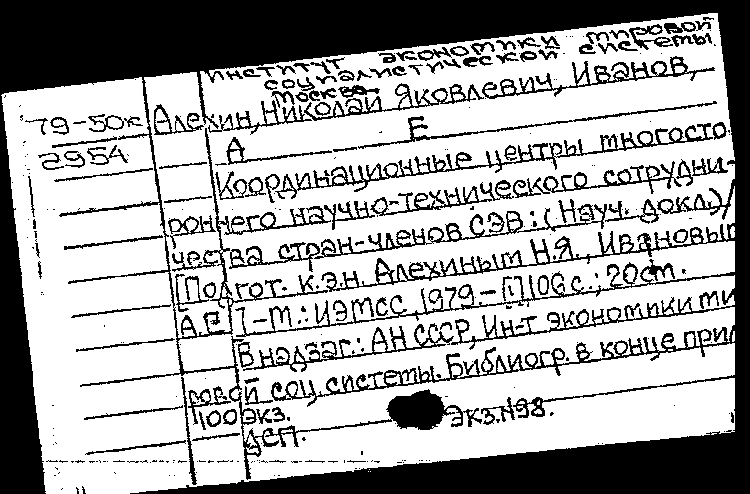 институт экономики мировой
социалистической системы
москва.
79-50к Алехин, Николай Яковлевич, Иванов,
2954 А Е
Координационные центры многосто
роннего научно-технического сотрудни-
чества стран-членов СЭВ: (Науч. докл.)/
[Подгот. к.э.н. Алехиным Н.Я., Ивановым
А.Е.] -М.: ИЭМСС, 1979.- [1] 106 с.; 20 см.
В надзаг.: АН СССР, Ин-т экономики ми
ровой соц. системы. Библиогр. в конце прил
100 экз.
ДСП. Экз. №98.